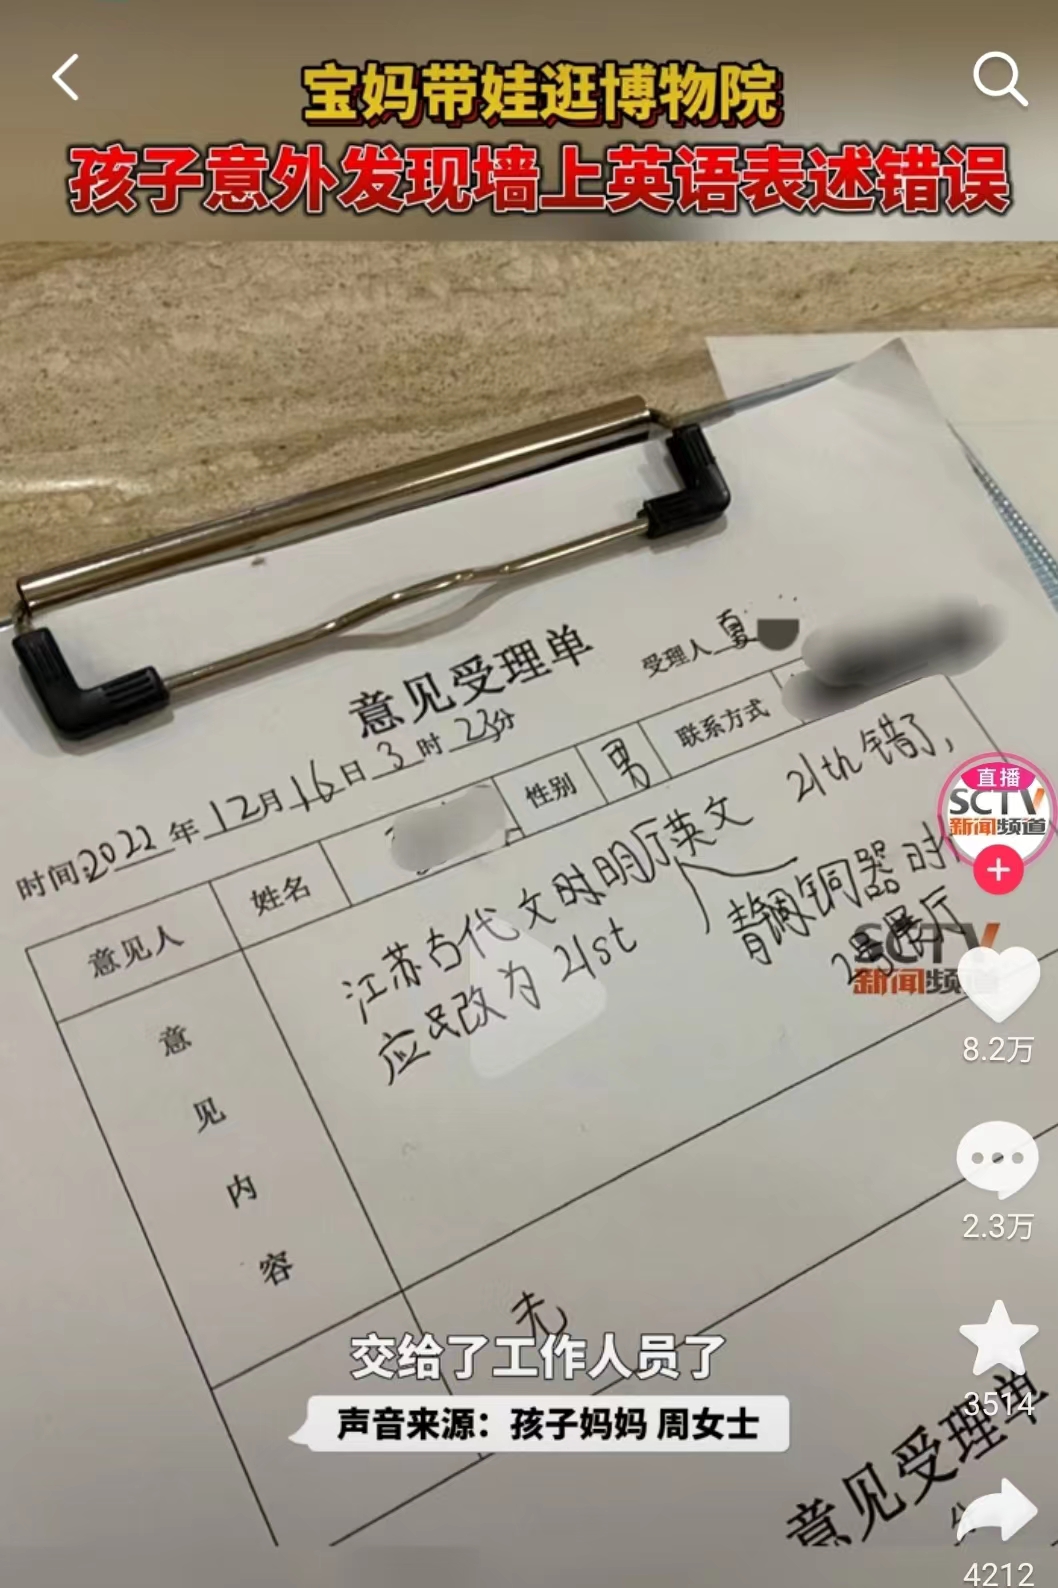 宝妈带娃逛博物院
孩子意外发现墙上英语表述错误
意见受理单
受理人 夏
时间:2022年12月16日3时23分
意见人
姓名
性别
男
联系方式
意见内容
江苏古代文明厅英文 21th错了,
应改为 21st
青铜器时
2号展厅
无
直播
SCTV
新闻频道
SCTV
新闻频道
8.2万
2.3万
3514
4212
交给了工作人员了
声音来源：孩子妈妈 周女士
意见受理单